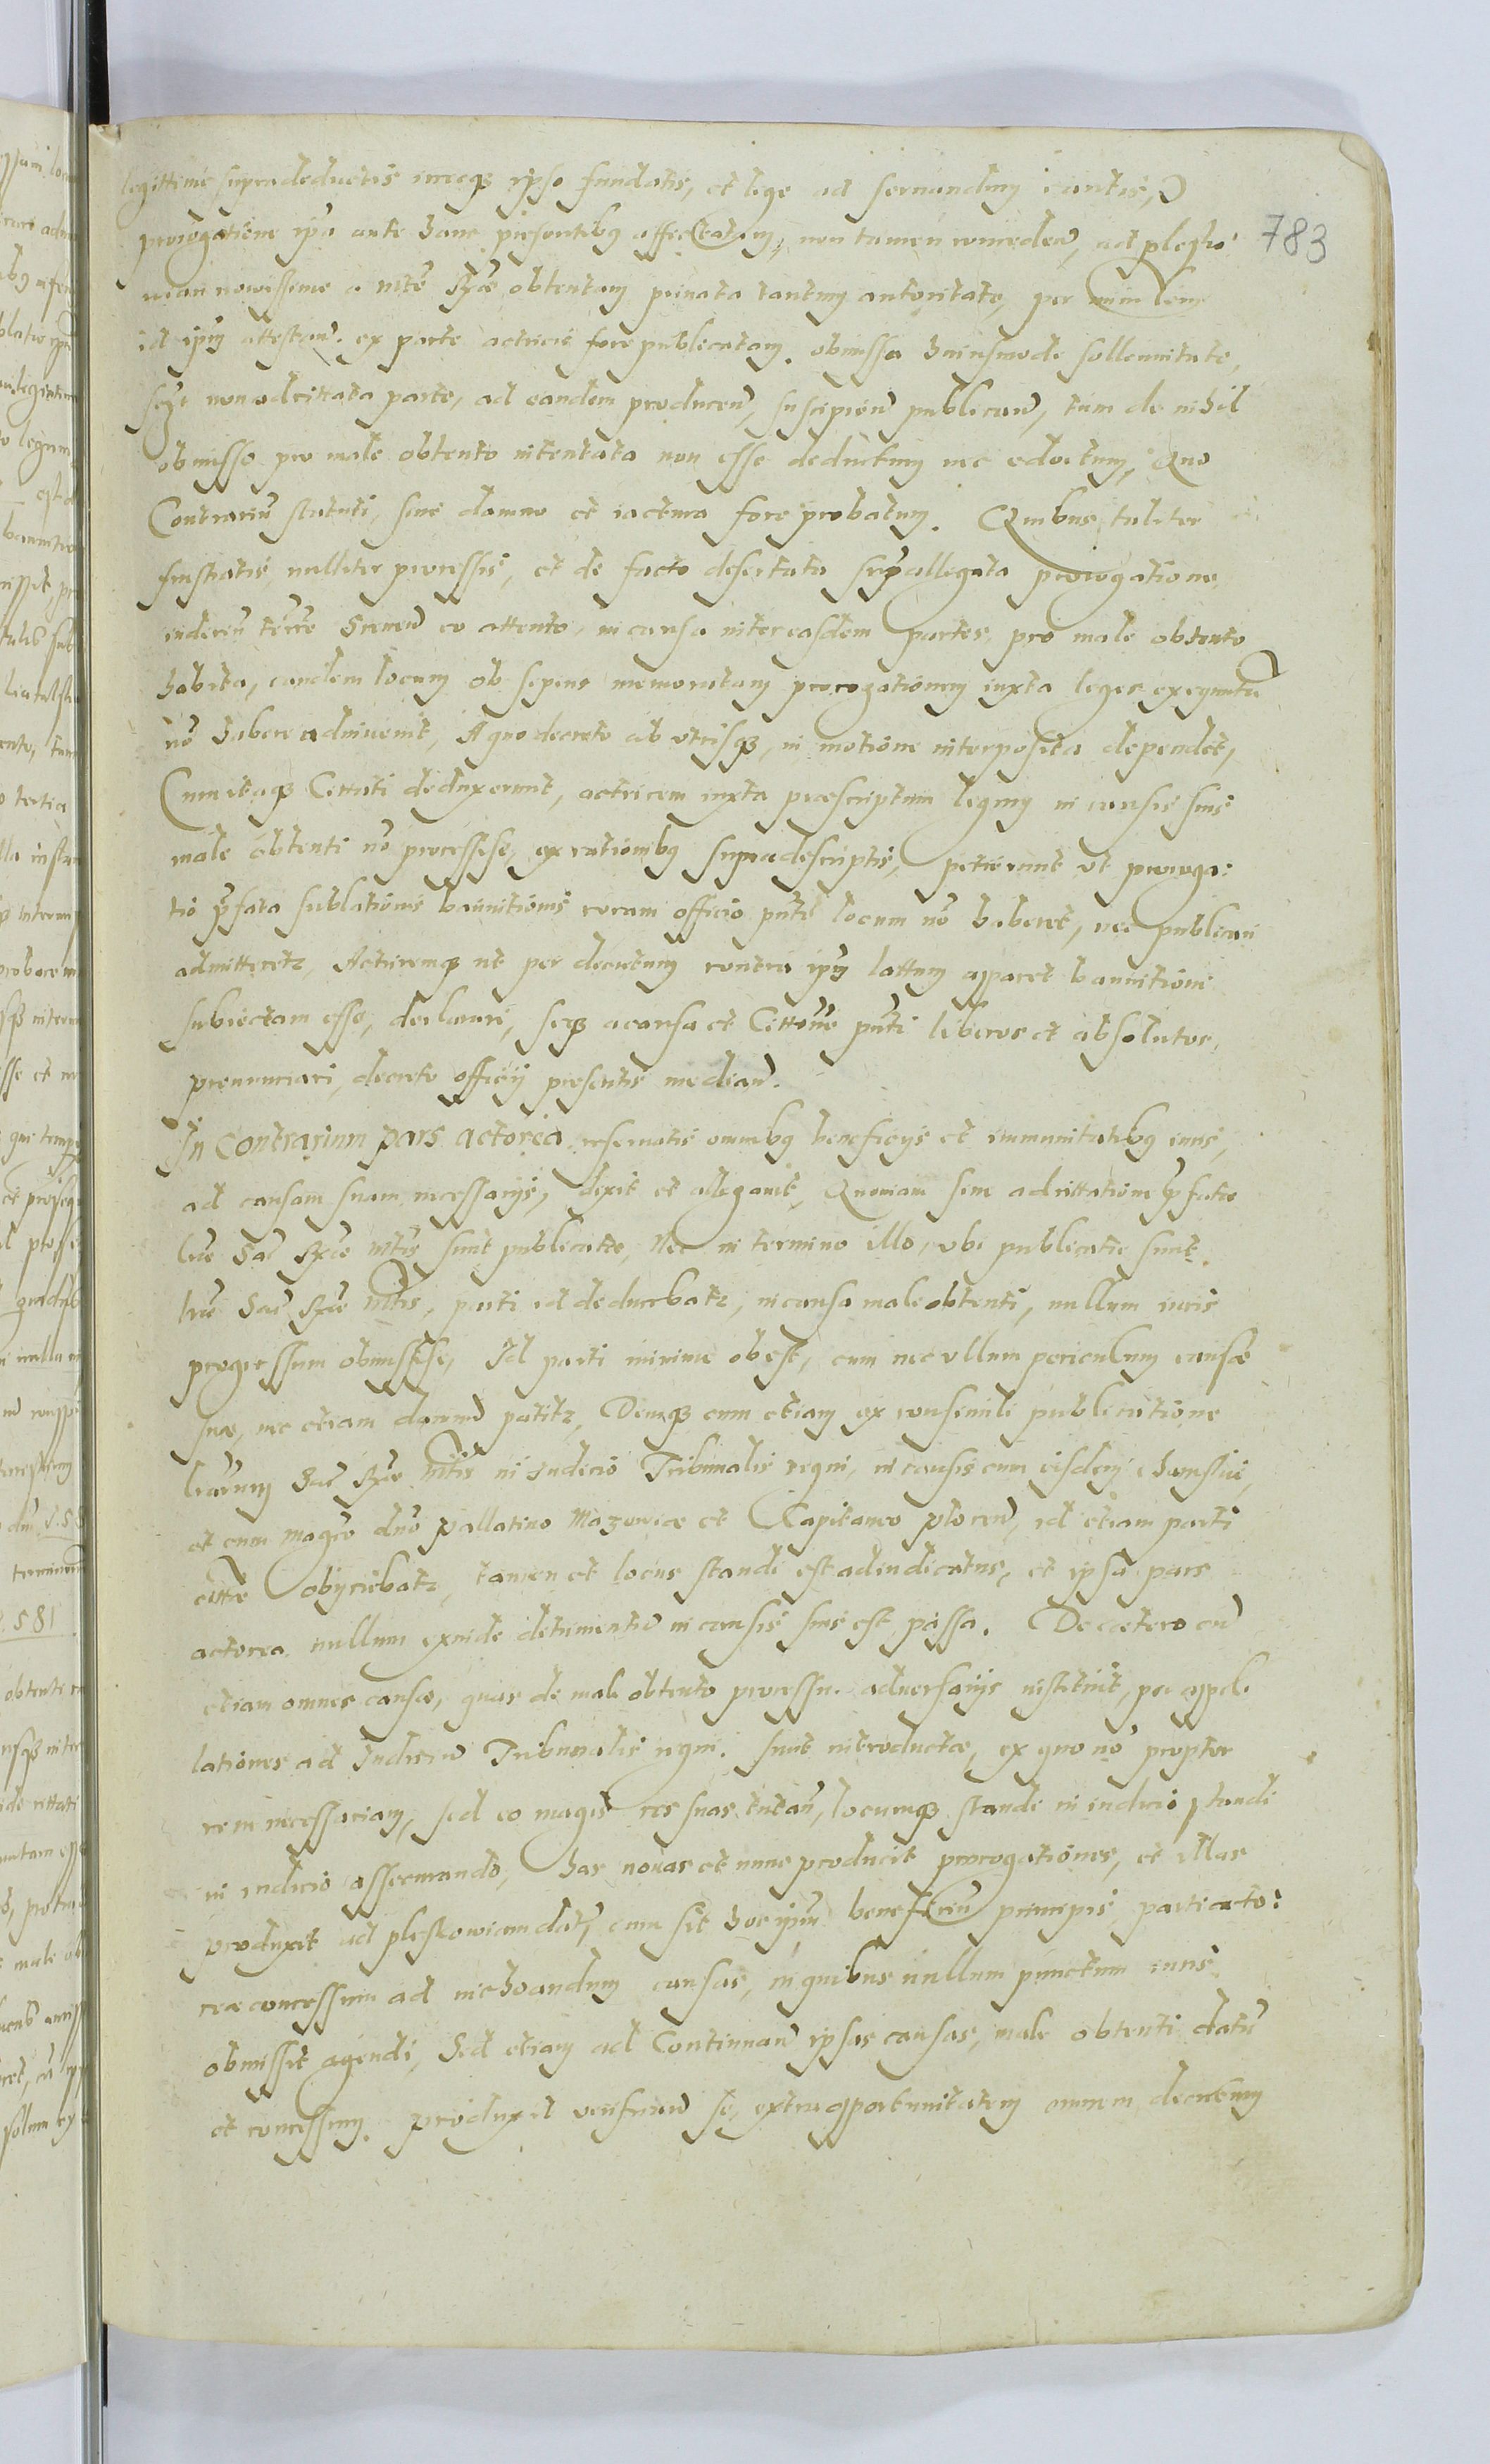 783
legittime supradeductis iureque ipso fundatis, et lege ad seruandum
prorogatione ipsa ante hanc presentibus affectatam, non tamen conceden, ad plesko:
uiam nouissime a Mte Rgia obtentam priuata tantum autoritate, per
id ipsum attestan. ex parte actricis fore publicatam. obmissa huiusmodi sollennitate,
non adcitata parte, ad eandem producen, suscipien publican, tum de nihil
obmisso pro male obtento intentata non esse deductum nec edoctum, Quo
Contrariu statuti, sine damno et iactura fore probatum. Quibus taliter
frustratis, nulliter processis, et de facto desertata supallegata prorogatione
iudiciu terre eo attento, in causa inter easdem partes, pro male obtento
habita, eandem locum ob sepius memoratam prorogationem iuxta leges
no habere adinuenit, A quo decreto ab vtrisque, in motione interposita dependet,
Cum itaque Cittati deduxerunt, actricem iuxta praescriptum legum in causis suis
male obtenti no processisse, ex rationibus supradescriptis, petierunt vt proroga:
tio pfata sublationis bannitionis coram officio pnti locum no haberet, nec publicari
admitteretr, Actricemque ut per decretum contra ipsum lattum apparet bannitioni
subiectam esse, declarari, seque a causa et Cittone pnti liberos et absolutos,
pronunciari, decreto officij presentis median.
In Contrarium pars actorea reseruatis omnibus beneficijs et immunitatibus iuris,
ad causam suam necessarijs, dixit et allegauit, Quoniam sine adcittatione pfatae
lrae Sac Rgae Mtis sunt publicatae, Nec in termino illo, vbi publicatae sunt.
lrae Sac Rgae Mtis, parti id deducebatr, in causa male obtenti, nullum iuris
progressum obmisisse, Id parti minime obest, cum nec vllum periculum causae
suae, nec etiam damnu patitr, Denique cum etiam ex consimili publicatione
lrarum Sac Rgae Mtis in Iudicio Tribunalis regni, in causis cum eisdem
et cum magco dno pallatino Mazouiae et Capitaneo plocen, id etiam parti
cittae obijciebatr, tamen et locus standi est adiudicatus, et ipsa pars
actorea nullum exinde detrimentu in causis suis est passa. De caetero cu
etiam omnes causae, quas de male obtento processu aduersarijs instituit, per appel:
lationes ad Iudiciu Tribunalis regni. sunt introductae, ex quo no propter
rem necessariam, sed eo magis res suas tutan, locumque standi in iudicio standi
in iudicio asseruando, has nouas et nunc producit prorogationes, et illas
produxit ad pleskowiam dat, cum sit hoc ipsum beneficiu principis, parti acto:
reae concessum ad inchoandum causas, in quibus nullum punctum iuris
obmissit agendi, Sed etiam ad Continuan ipsas causas, male obtenti datu
et concessum. produxit se, extra opportunitatem omnem decretum